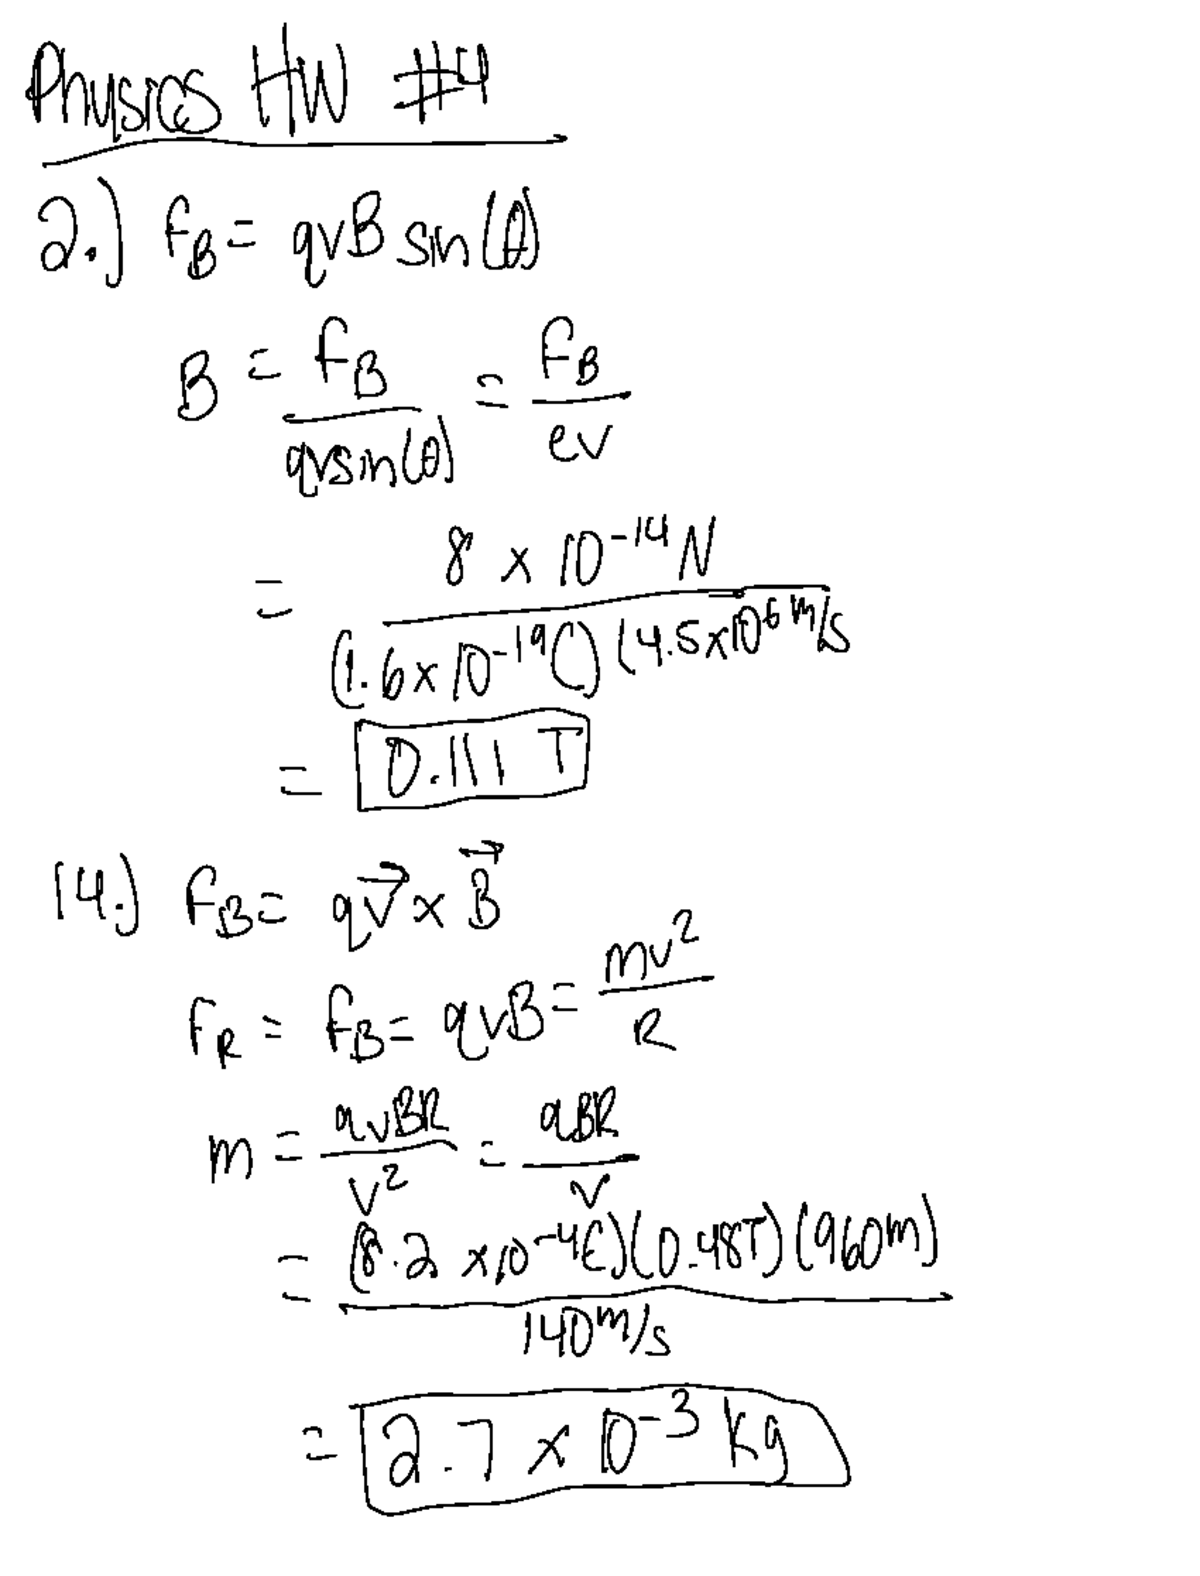 Physics HW #4
2.) F_B = qvB sin(θ)
B = F_B / qvsin(θ) = F_B / ev
= 8 × 10^-14 N / (1.6 × 10^-19 C) (4.5 × 10^6 m/s
= 0.111 T
14.) F_B = qv⃗ × B⃗
F_R = F_B = qvB = mv^2 / R
m = qvBR / v^2 = qBR / v
= (8.2 × 10^-4 C)(0.48T)(960m) / 140 m/s
= 2.7 × 10^-3 kg